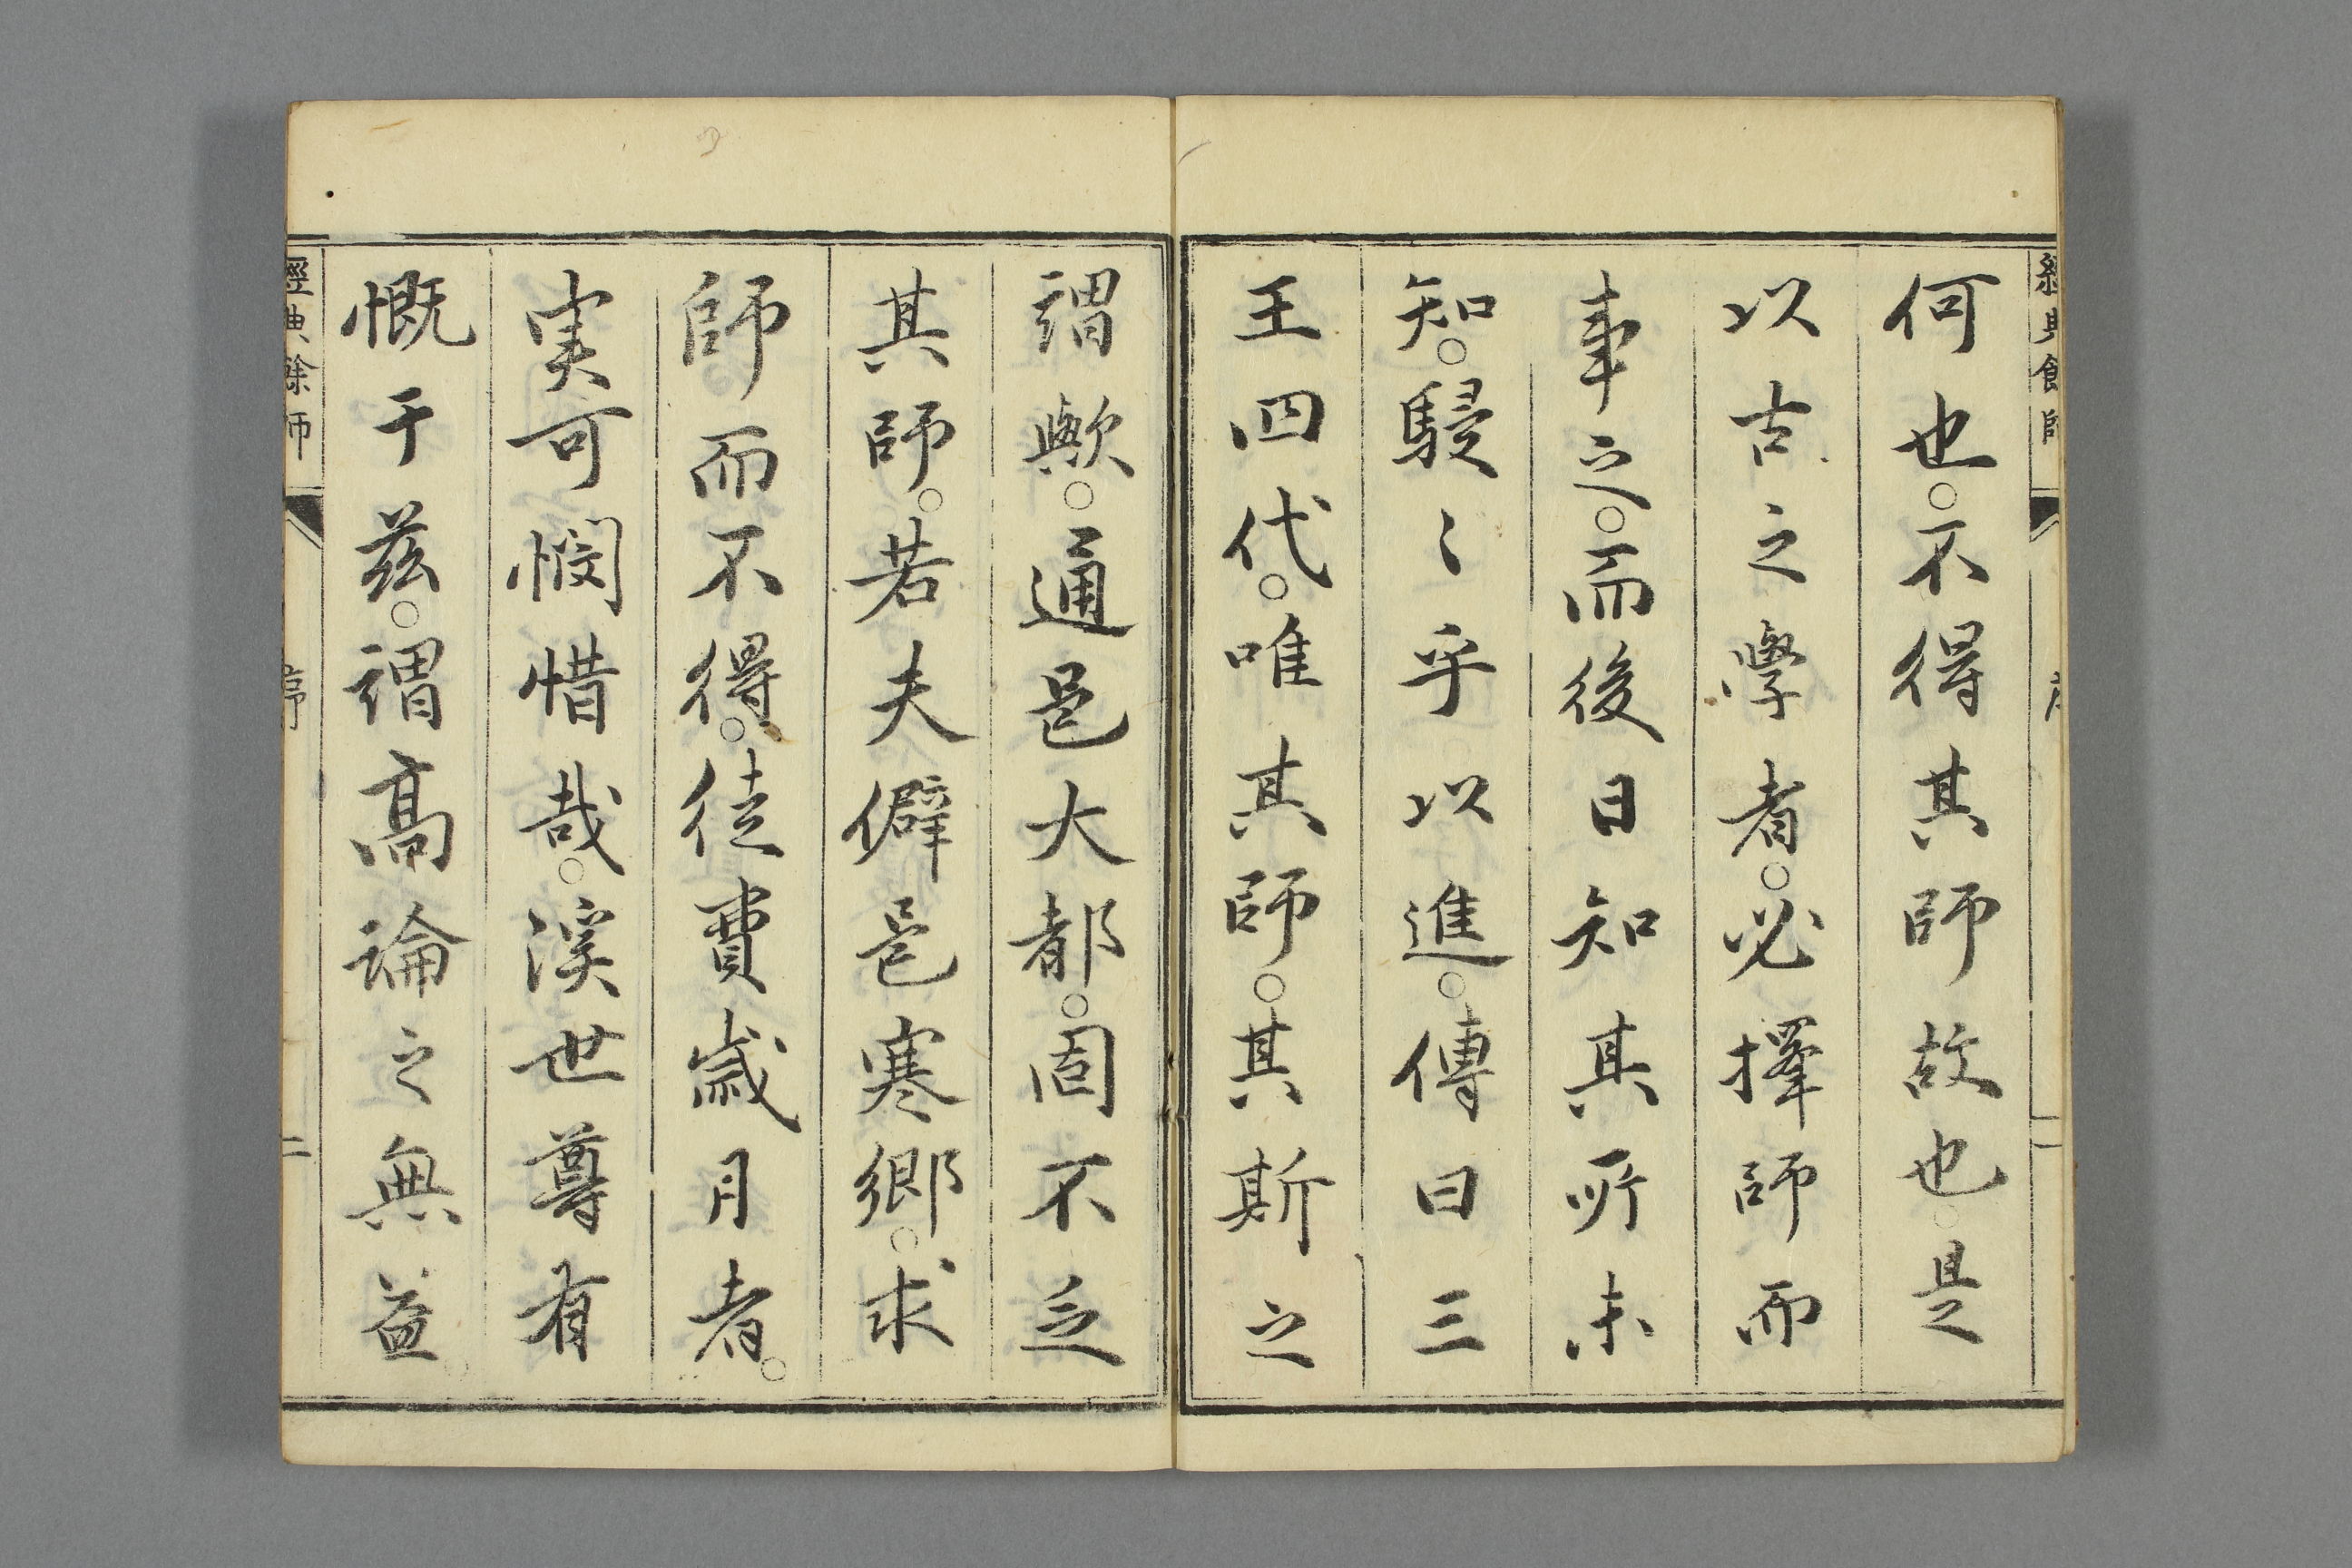 何也。不得其師故也。是
以古之學者。必擇師而
事之。而後日知其所未
知。駸〻乎以進。傳曰三
王四代。唯其師。其斯之
謂歟。通邑大都。固不乏
其師。若夫僻邑寒鄉。求
師而不得。徒費歳月者。
実可憫惜哉。溪世尊有
慨于兹。謂高論之無益。
經典餘師
序
二